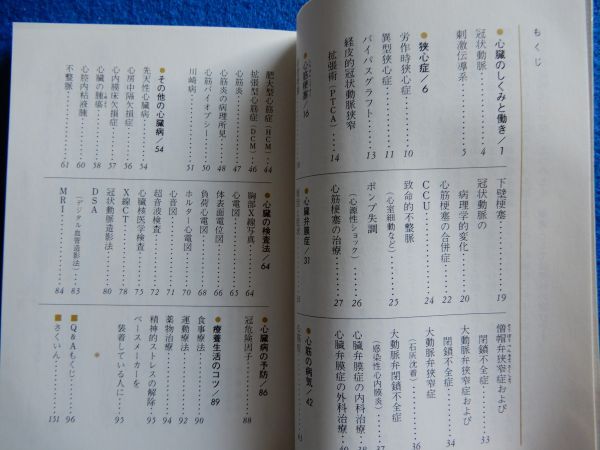 もくじ
●心臓のしくみと働き／1
冠状動脈・・・・・・4
刺激伝導系・・・・・・5
●狭心症／6
労作時狭心症・・・・・・10
異型狭心症・・・・・・11
バイパスグラフト・・・・・・13
経皮的冠状動脈狭窄
拡張術（PTCA）・・・・・・14
●心筋梗塞／16
下壁梗塞・・・・・・19
冠状動脈の
病理学的変化・・・・・・20
心筋梗塞の合併症・・・・・・22
CCU・・・・・・24
致命的不整脈
（心室細動など）・・・・・・25
ポンプ失調
（心源性ショック）・・・・・・26
心筋梗塞の治療・・・・・・27
●心臓弁膜症／31
僧帽弁狭窄症および
閉鎖不全症・・・・・・33
大動脈弁狭窄症および
閉鎖不全症・・・・・・34
大動脈弁狭窄症
（石灰沈着）・・・・・・36
大動脈弁閉鎖不全症
（感染性心内膜炎）・・・・・・37
心臓弁膜症の内科治療・・・
心臓弁膜症の外科治療・・・
●心筋の病気／42
肥大型心筋症（HCM）・・・44
拡張型心筋症（DCM）・・・46
心筋炎・・・・・・49
心筋炎の病理所見・・・・・・48
心筋バイオプシー・・・・・・50
川崎病・・・・・・51
●その他の心臓病／54
先天性心臓病・・・・・・54
心房中隔欠損症・・・・・・56
心内膜床欠損症・・・・・・57
心臓の腫瘍・・・・・・58
心腔内粘液腫・・・・・・60
不整脈・・・・・・61
●心臓の検査法／64
胸部X線写真・・・・・・64
心電図・・・・・・65
体表面電位図・・・・・・66
負荷心電図・・・・・・68
ホルター心電図・・・・・・70
心音図・・・・・・71
超音波検査・・・・・・72
心臓核医学検査・・・・・・75
X線CT・・・・・・78
冠状動脈造影法・・・・・・80
DSA
（デジタル血管造影法）・・・83
MRI・・・・・・84
●心臓病の予防／86
冠危険因子・・・・・・88
●療養生活のコツ／89
食事療法・・・・・・90
運動療法・・・・・・92
薬物治療・・・・・・94
精神的ストレスの解除・・・95
ペースメーカーを
装着している人に・・・95
■Q&Aもくじ・・・・・・96
■さくいん・・・・・・151